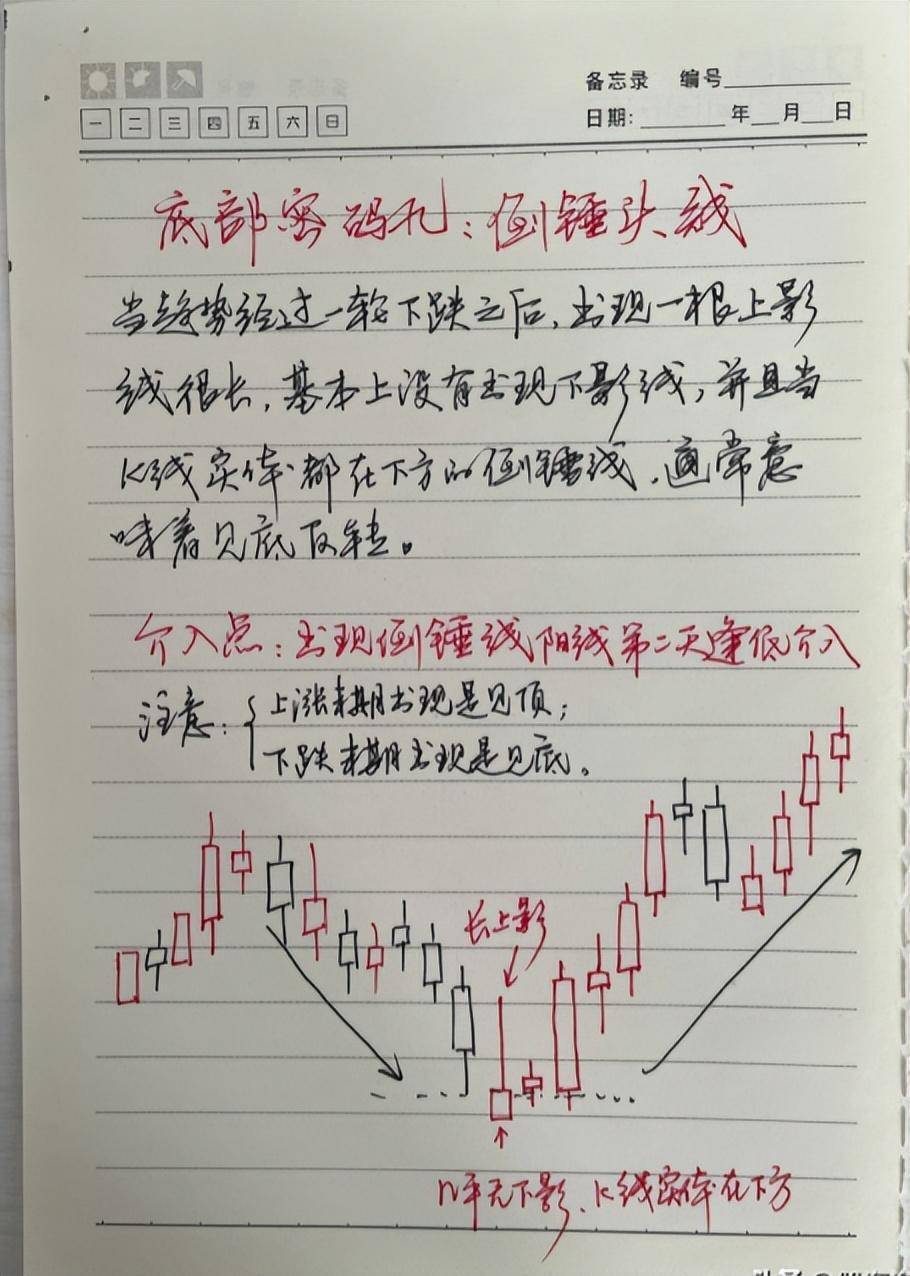 备忘录 编号
一 二 三 四 五 六 日
日期: 年 月 日
底部密码孔:倒锤头线
当趋势经过一轮下跌之后,出现一根上影
线很长,基本上没有出现下影线,并且当
K线实体都在下方的倒锤线,通常意
味着见底反转。
介入点:出现倒锤线阳线第二天逢低介入
注意: 上涨末期出现是见顶;
下跌末期出现是见底。
长上影
几乎无下影、K线实体在下方